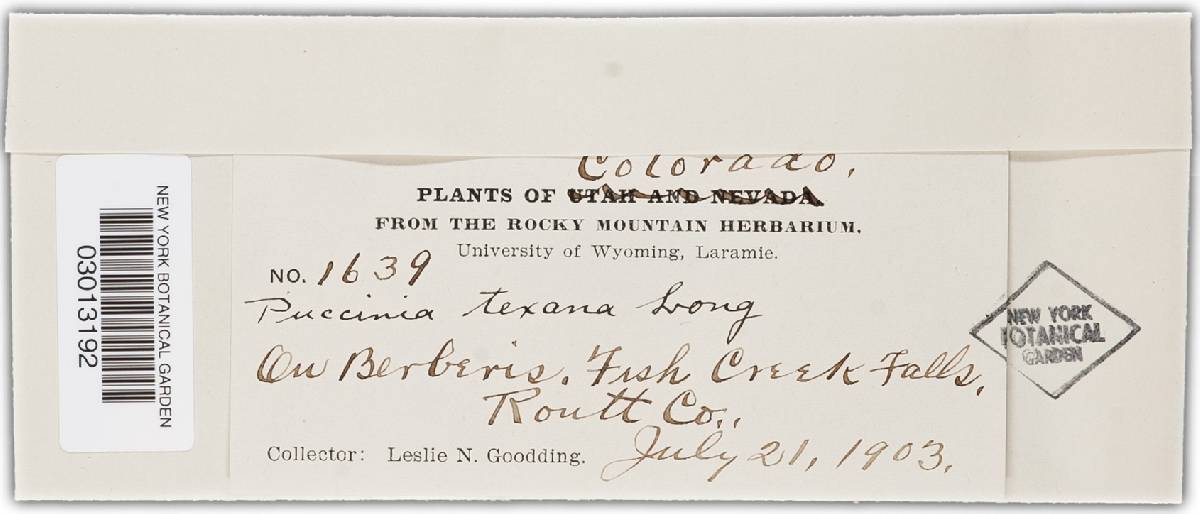 Colorado.
PLANTS OF UTAH AND NEVADA.
FROM THE ROCKY MOUNTAIN HERBARIUM.
University of Wyoming, Laramie.
NO. 1639
Puccinia texana Long
On Berberis. Fish Creek Falls,
Routt Co.,
Collector: Leslie N. Goodding. July 21, 1903.
NEW YORK BOTANICAL GARDEN
03013192
NEW YORK
BOTANICAL
GARDEN